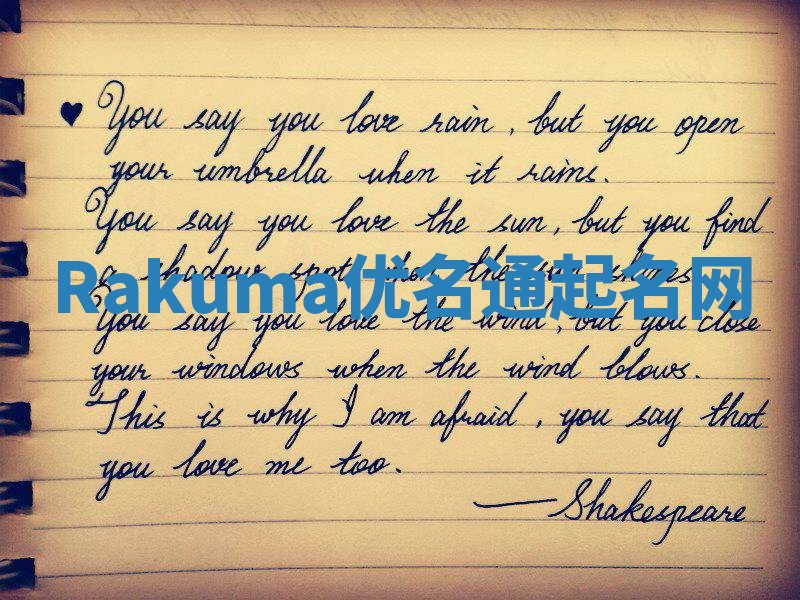 ♥ You say you love rain, but you open
your umbrella when it rains.
You say you love the sun, but you find
a shadow spot when the sun shines
Rakuma优名通起名网
You say you love the wind, but you close
your windows when the wind blows.
This is why I am afraid, you say that
you love me too.
—Shakespeare